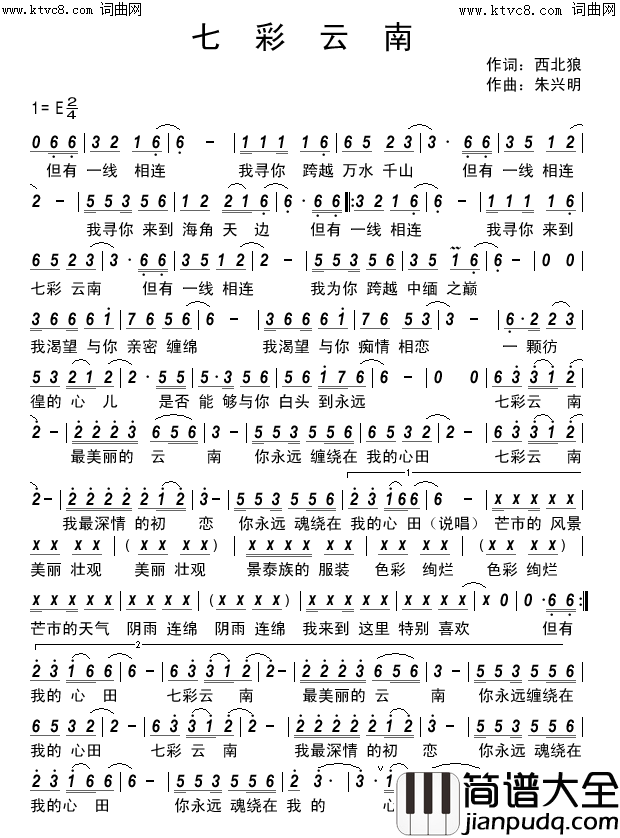 www.ktvc8.com 词曲网
www.ktvc8.com 词曲网
七彩云南
作词：西北狼
作曲：朱兴明
1=E 2/4
0 6 6 | 3 2 1 6 | 6 - | 1 1 1 1 6 | 6 5 2 3 | 3· 6 6 | 3 5 1 2 |
但有 一线 相连 我寻你 跨越 万水 千山 但有 一线 相连
2 - | 5 5 3 5 6 | 1 2 2 1 6 | 6· 6 6 |: 3 2 1 6 | 6 - | 1 1 1 1 6 |
我寻你 来到 海角 天 边 但有 一线 相连 我寻你 来到
6 5 2 3 | 3· 6 6 | 3 5 1 2 | 2 - | 5 5 3 5 6 | 3 5 1 6 | 6 - | 0 0 |
七彩 云南 但有 一线 相连 我为你 跨越 中缅 之巅
3 6 6 6 i | 7 6 5 6 | 6 - | 3 6 6 6 i | 7 6 5 3 | 3 - | 6· 2 2 3 |
我渴望 与你 亲密 缠绵 我渴望 与你 痴情 相恋 一 颗彷
5 3 2 1 2 | 2· 5 5 | 5 3 5 6 | i 7 6 | 6 - | 0 0 | 6 3 3 1 2 |
徨的 心 儿 是否 能 够与你 白头 到永远 七彩云 南
2 - | 2 2 2 3 | 6 5 6 | 3 - | 5 5 3 5 5 6 | 6 5 3 2 | 2 - | 6 3 3 1 2 |
最美丽的 云 南 你永远 缠绕在 我的心田 七彩云 南
1
2 - | 2 2 2 2 2 1 2 | 3 - | 5 5 3 5 5 6 | 2 3 1 6 6 | 6 - | x x x x x |
我最深情 的初 恋 你永远 魂绕在 我的心 田（说唱）芒市的 风景
x x x x | (x x x x) | x x x x x | x x x x | (x x x x) |
美丽 壮观 美丽 壮观 景泰族的 服装 色彩 绚烂 色彩 绚烂
x x x x x | x x x x | (x x x x) | x x x x x x x x | x 0 | 0· 6 6 :|
芒市的天气 阴雨 连绵 阴雨 连绵 我来到 这里 特别 喜欢 但有
2
2 3 1 6 6 | 6 - | 6 3 3 1 2 | 2 - | 2 2 2 3 | 6 5 6 | 3 - | 5 5 3 5 5 6 |
我的 心 田 七彩云 南 最美丽的 云 南 你永远缠绕在
6 5 3 2 | 2 - | 6 3 3 1 2 | 2 - | 2 2 2 2 2 1 2 | 3 - | 5 5 3 5 5 6 |
我的 心田 七彩 云 南 我最深情 的初 恋 你永远 魂绕在
2 3 1 6 6 | 6 - | 5 5 3 5 5 6 | 2 3 |
我的 心 田 你永远 魂绕在 我 的 心
简谱大全
jianpudq.com